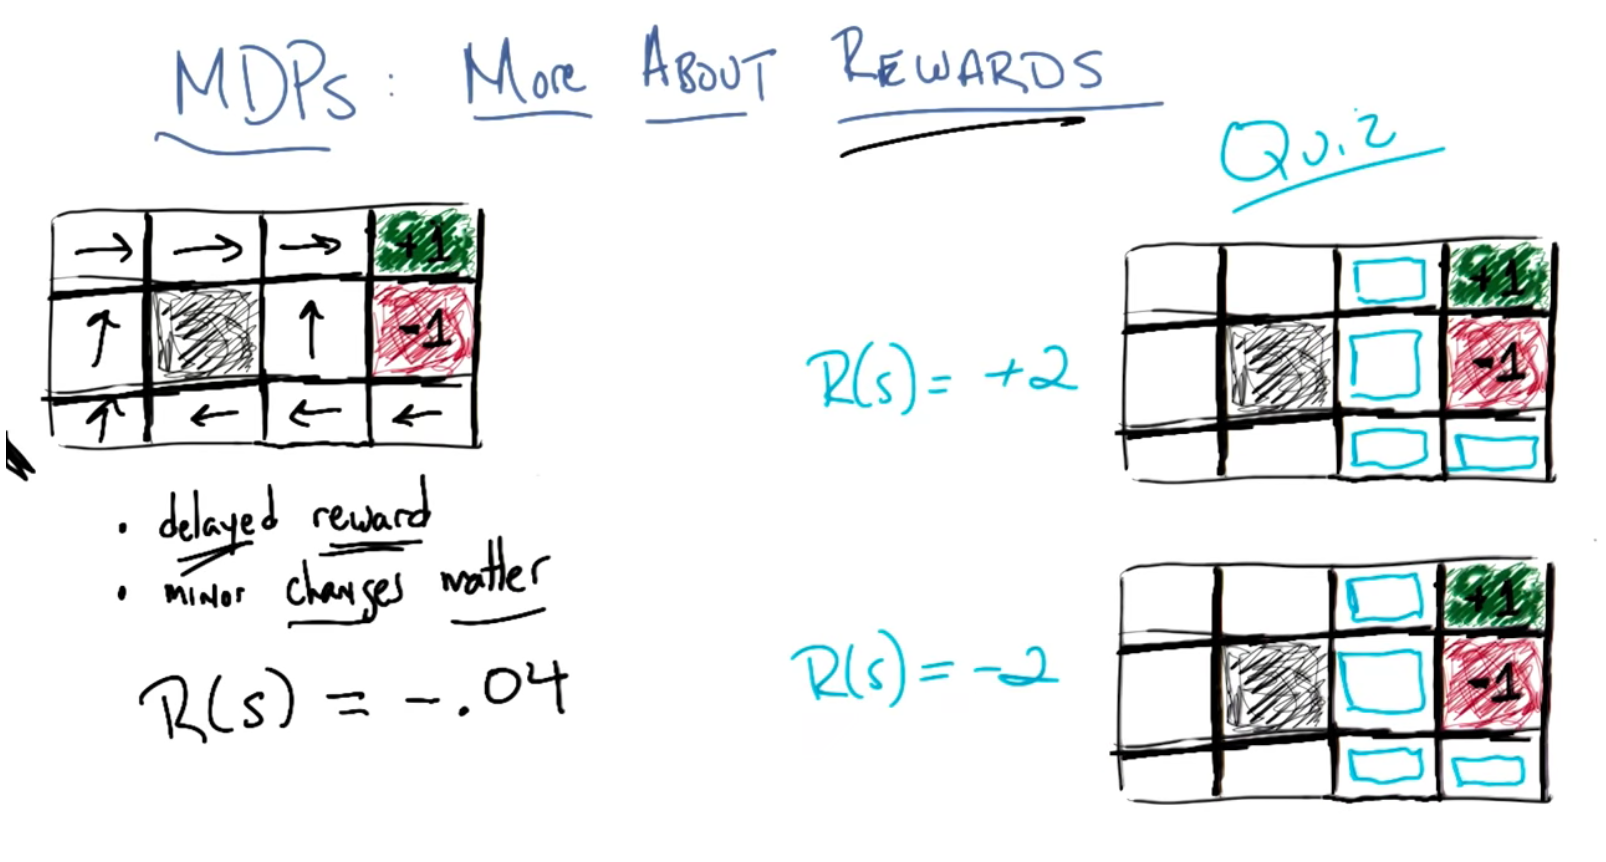 MDPs: More About Rewards
Quiz
→ → → +1
↑ ↑ -1
↑ ← ← ←
• delayed reward
• minor changes matter
R(s) = -.04
+1
R(s) = +2
-1
+1
R(s) = -2
-1